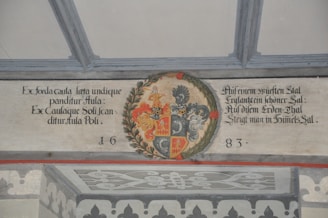 Ex sorda caula lata undique
panditur Aula:
Ex Caulaque Soli scan-
ditur Aula Poli.
Auß einem wüsten Stal
Erglantz ein schöner Sal:
Auß disem Erden-Thal
Steigt man in Himels-Sal.
1683.